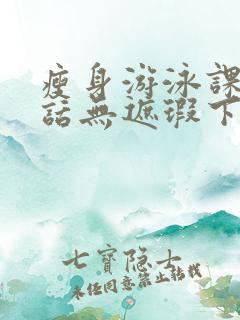 瘦身游泳課
話無遮瑕下
七寶隐士
未经同意禁止转载